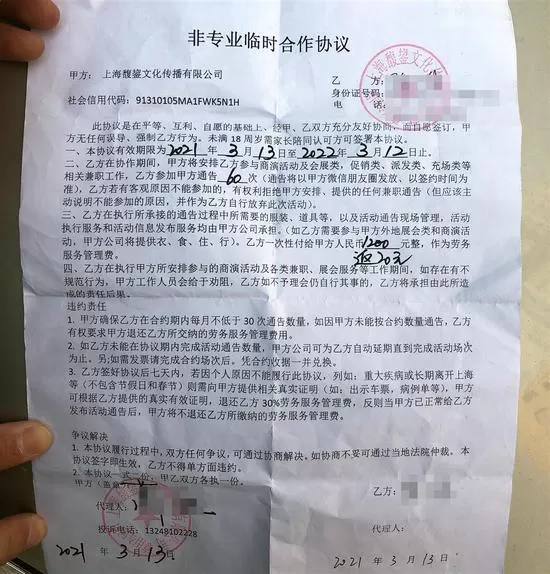 非专业临时合作协议
甲方：上海馥鋆文化传播有限公司
乙 方：
社会信用代码：91310105MA1FWK5N1H
身份证号码：
电 话
此协议是在平等、互利、自愿的基础上、经甲、乙双方充分友好协商，而自愿签订，甲
方无任何误导、强制乙方行为。未满 18 周岁需家长陪同认可方可签署本协议。
一、本协议有效期限为2021年 3 月 13日至2022年 3 月 12日止。
二、乙方在协作期间，甲方将安排乙方参与商演活动及会展类，促销类、派发类、充场类等
相关兼职工作，乙方参加甲方通告 60 次（通告将以甲方微信朋友圈发放、以签约时间为
准），乙方若有客观原因不能参加的，有权利拒绝甲方安排、提供的任何兼职通告（但应该主
动说明不能参加的原因，并作为乙方自行放弃此次活动）。
三、乙方在执行所承接的通告过程中所需要的服装、道具等，以及活动通告现场管理，活动
执行服务和活动信息发布服务均由甲方公司承担。（如乙方需要参与甲方外地展会类和商演活
动，甲方公司将提供衣、食、住、行）。乙方一次性付给甲方人民币1200元整，作为劳务
服务管理费。
四、乙方在执行甲方所安排参与的商演活动及各类兼职、展会服务等工作期间，如存在有不
规范行为，甲方工作人员会给于劝阻，乙方如不予理会仍自行其事的，乙方将承担由此所造
成的责任后果。
违约责任
1. 甲方确保乙方在合约期内每月不低于 30 次通告数量，如因甲方未能按合约数量通告，乙方
有权要求甲方退还乙方所交纳的劳务服务管理费用。
2. 如乙方未能在协议期内完成活动通告数量，甲方公司可为乙方自动延期直到完成活动场次
为止。另;如需发票请完成合约场次后。凭合约收据一并兑换。
3. 乙方签好协议后七天内，若因个人原因不能履行此协议，列如：重大疾病或长期离开上海
等（不包含节假日和春节）则需向甲方提供相关真实证明（如：出示车票，病例单等），甲方
可根据乙方提供的真实有效证明，退还乙方 30%劳务服务管理费，反则当甲方已正常给乙方
发布活动通告后，甲方将不退还乙方所缴纳的劳务服务管理费。
争议解决
1. 本协议履行过程中，双方任何争议，可通过协商解决。如协商不妥可通过当地法院仲裁。本
协议签字即生效，乙方不得单方面违约。
2. 本协议一式二份，甲乙双方各执一份。
甲方（盖章
乙方：
代理人：
投诉电话：13248102228
代理人：
2021 年 3 月 13日
2021 年 3 月 13日